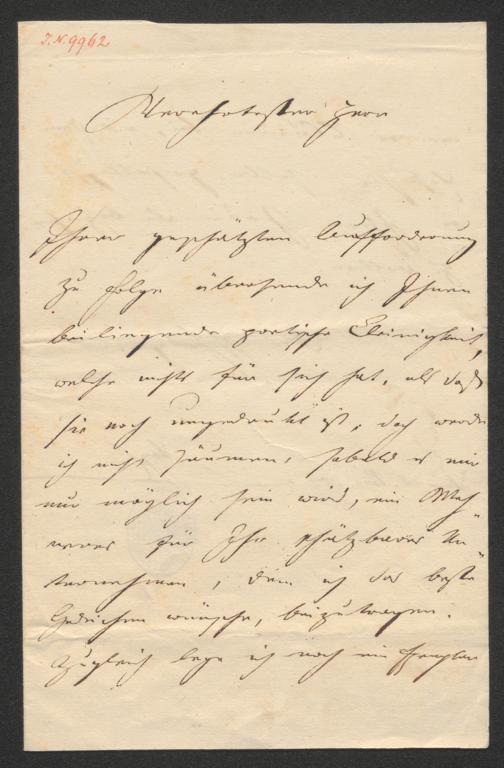 J.N. 9962
Verehrtester Herr
Ihrer geschätzten Aufforderung
zu Folge übersende ich Ihnen
beiliegende poetische Kleinigkeit,
welche nichts für sich hat, als daß
sie noch ungedruckt ist, doch werde
ich nicht säumen, sobald es mir
nur möglich sein wird, ein Meh-
reres für Ihr schätzbares Un-
ternehmen, dem ich das beste
Gedeihen wünsche, beizutragen.
Zugleich lege ich noch ein Exemplar